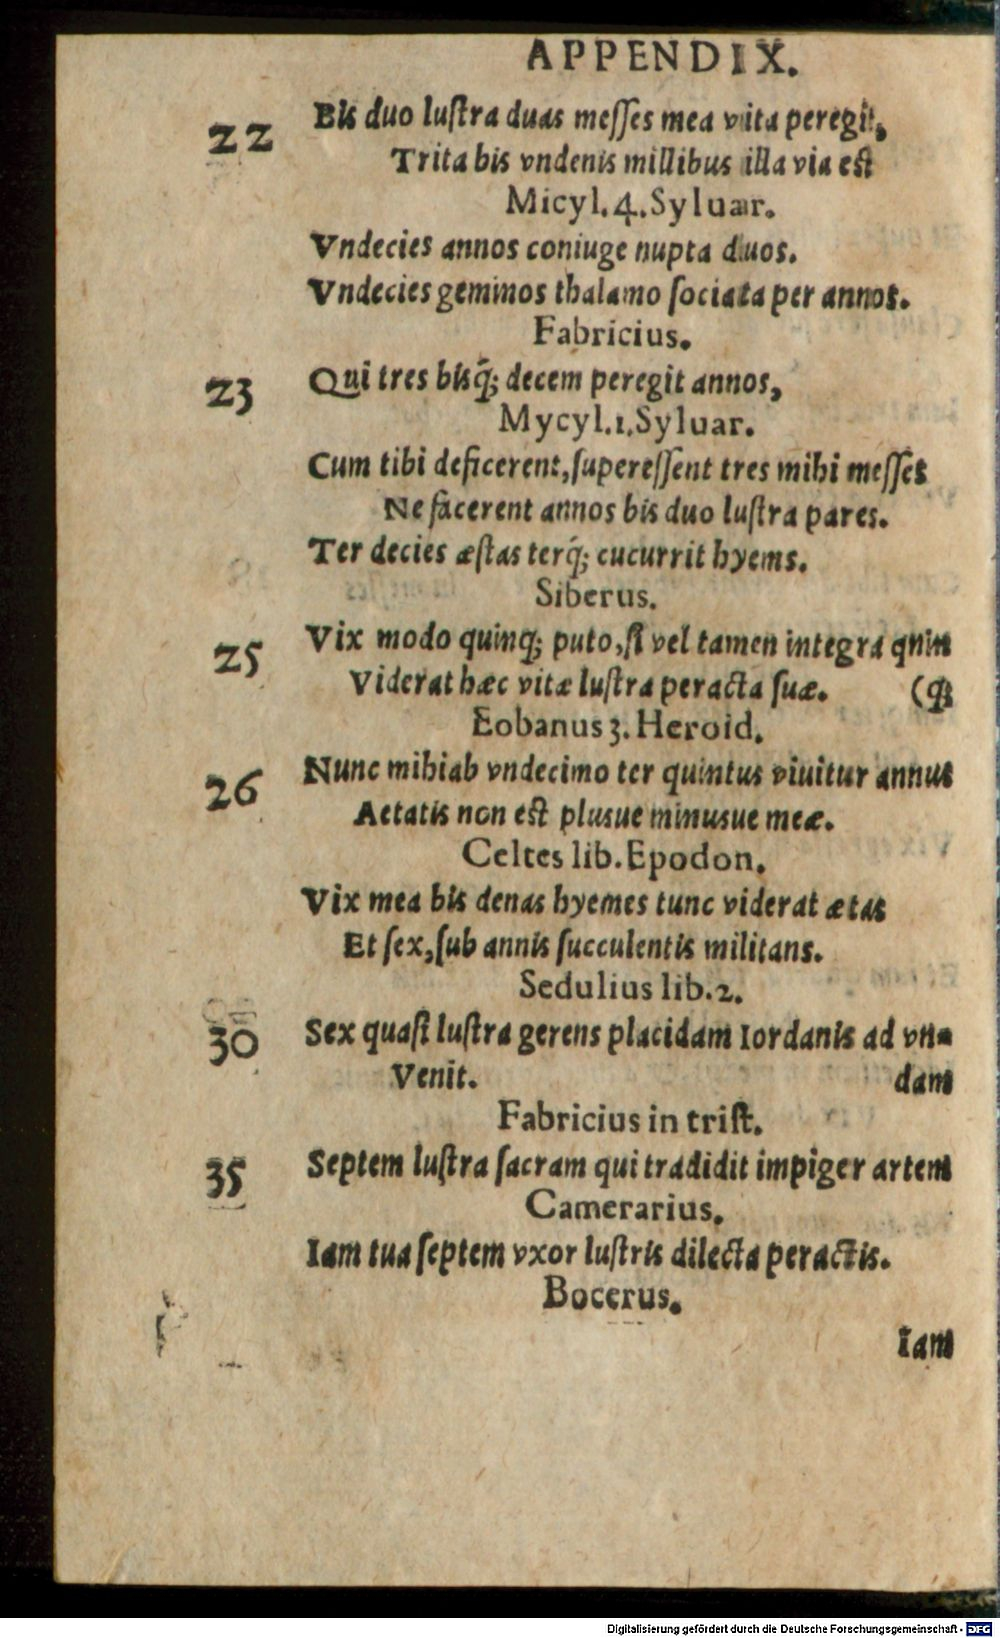 APPENDIX.
22 Bis duo luſtra duas meſſes mea vita peregit,
Trita bis vndenis millibus illa via eſt
Micyl. 4. Syluar.
Vndecies annos coniuge nupta duos.
Vndecies geminos thalamo ſociata per annos.
Fabricius.
23 Qui tres biſq́; decem peregit annos,
Mycyl. 1. Syluar.
Cum tibi deficerent, ſupereſſent tres mihi meſſes
Ne facerent annos bis duo luſtra pares.
Ter decies æſtas terq́; cucurrit hyems.
Siberus.
25 Vix modo quinq; puto, ſi vel tamen integra quin
Viderat hæc vitæ luſtra peracta ſuæ. (q;
Eobanus 3. Heroid.
26 Nunc mihi ab vndecimo ter quintus viuitur annus
Aetatis non eſt plusue minusue meæ.
Celtes lib. Epodon.
Vix mea bis denas hyemes tunc viderat ætas
Et ſex, ſub annis ſucculentis militans.
Sedulius lib. 2.
30 Sex quaſi luſtra gerens placidam Iordanis ad vn-
Venit. dam
Fabricius in triſt.
35 Septem luſtra ſacram qui tradidit impiger artem
Camerarius.
Iam tua ſeptem vxor luſtris dilecta peractis.
Bocerus.
Iam
Digitalisierung gefördert durch die Deutsche Forschungsgemeinschaft - DFG